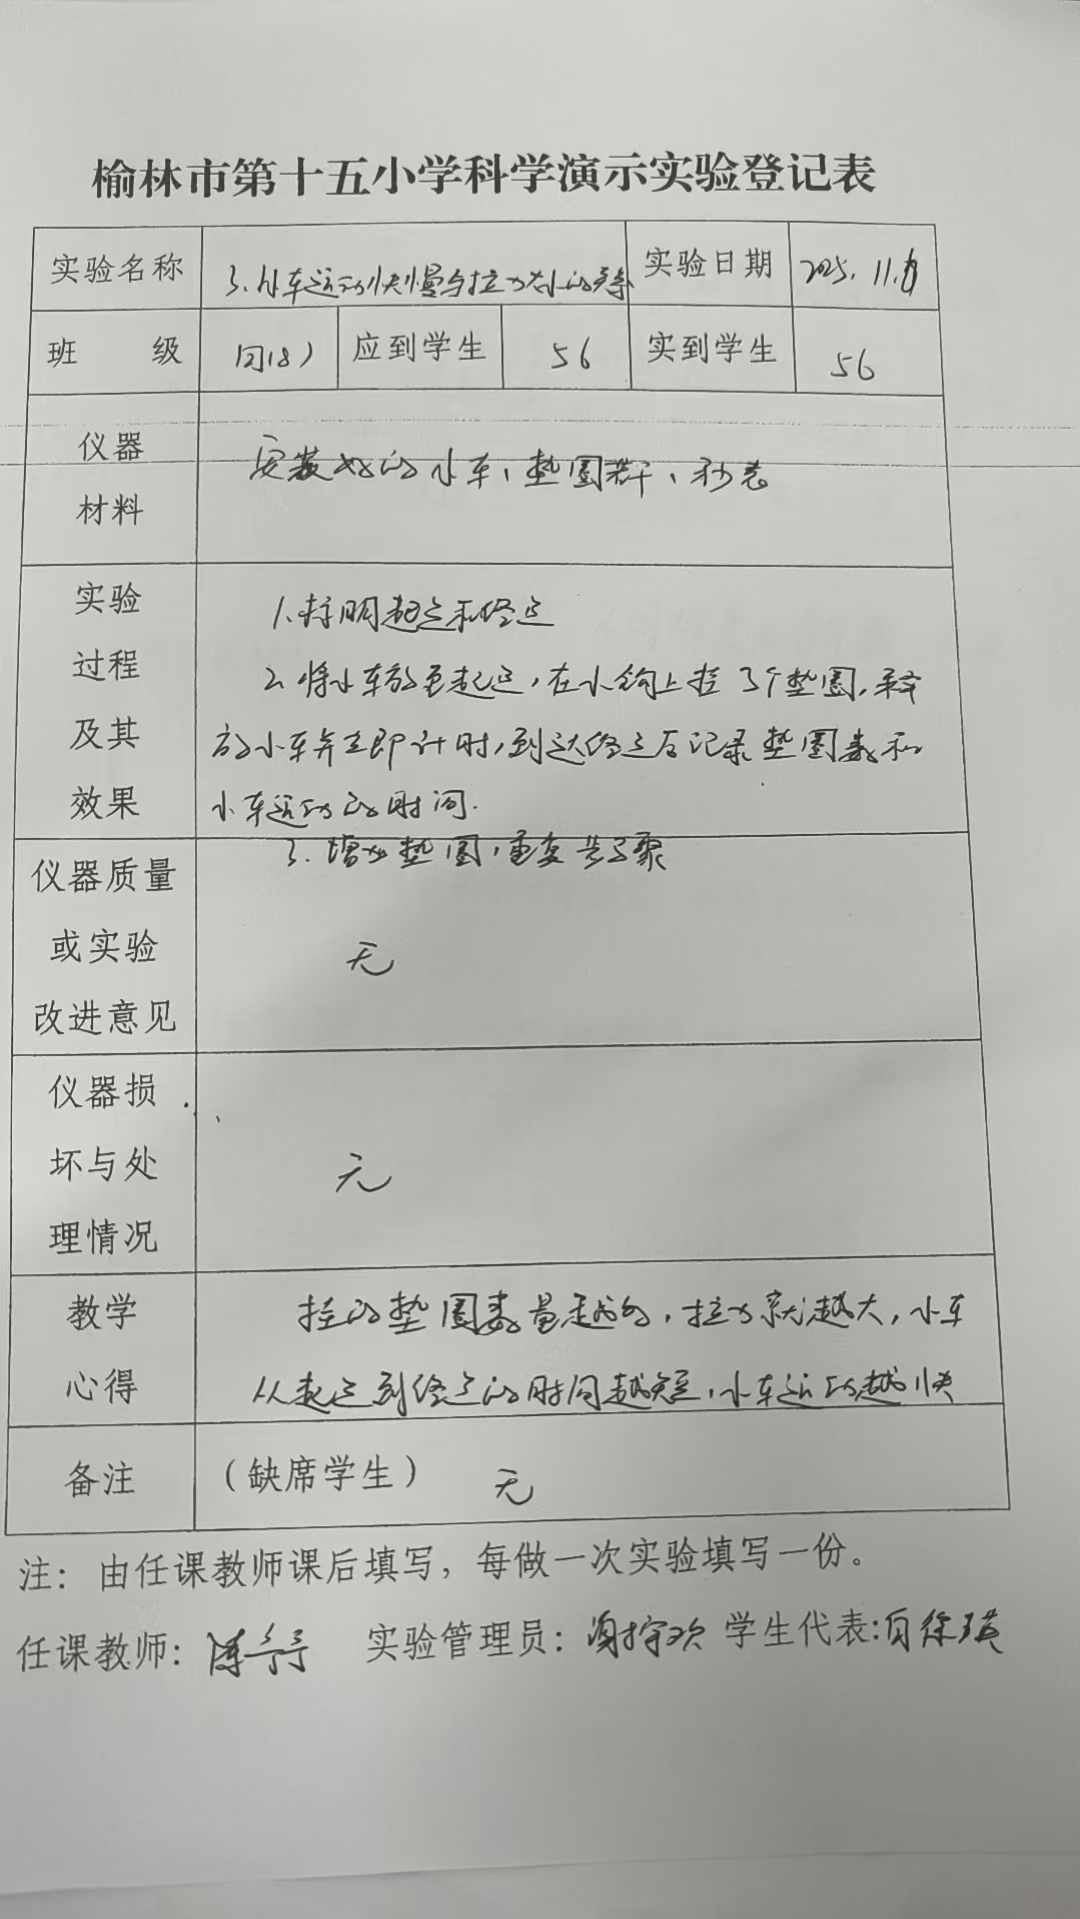 榆林市第十五小学科学演示实验登记表
实验名称 3.小车运动快慢与拉力大小的关系 实验日期 2025.11.
班 级 四(8) 应到学生 56 实到学生 56
仪器
安装好的小车、垫圈若干、秒表
材料
实验
1.标明起点和终点
过程
2.将小车放至起点,在小钩上挂3个垫圈,释
及其
放小车并立即计时,到达终点后记录垫圈数和
效果
小车运动的时间.
3.增加垫圈,重复步骤
仪器质量
或实验
无
改进意见
仪器损
坏与处
无
理情况
教学
挂的垫圈数量越多,拉力就越大,小车
心得
从起点到终点的时间越短,小车运动越快
备注 (缺席学生) 无
注:由任课教师课后填写,每做一次实验填写一份。
任课教师: 实验管理员: 学生代表: